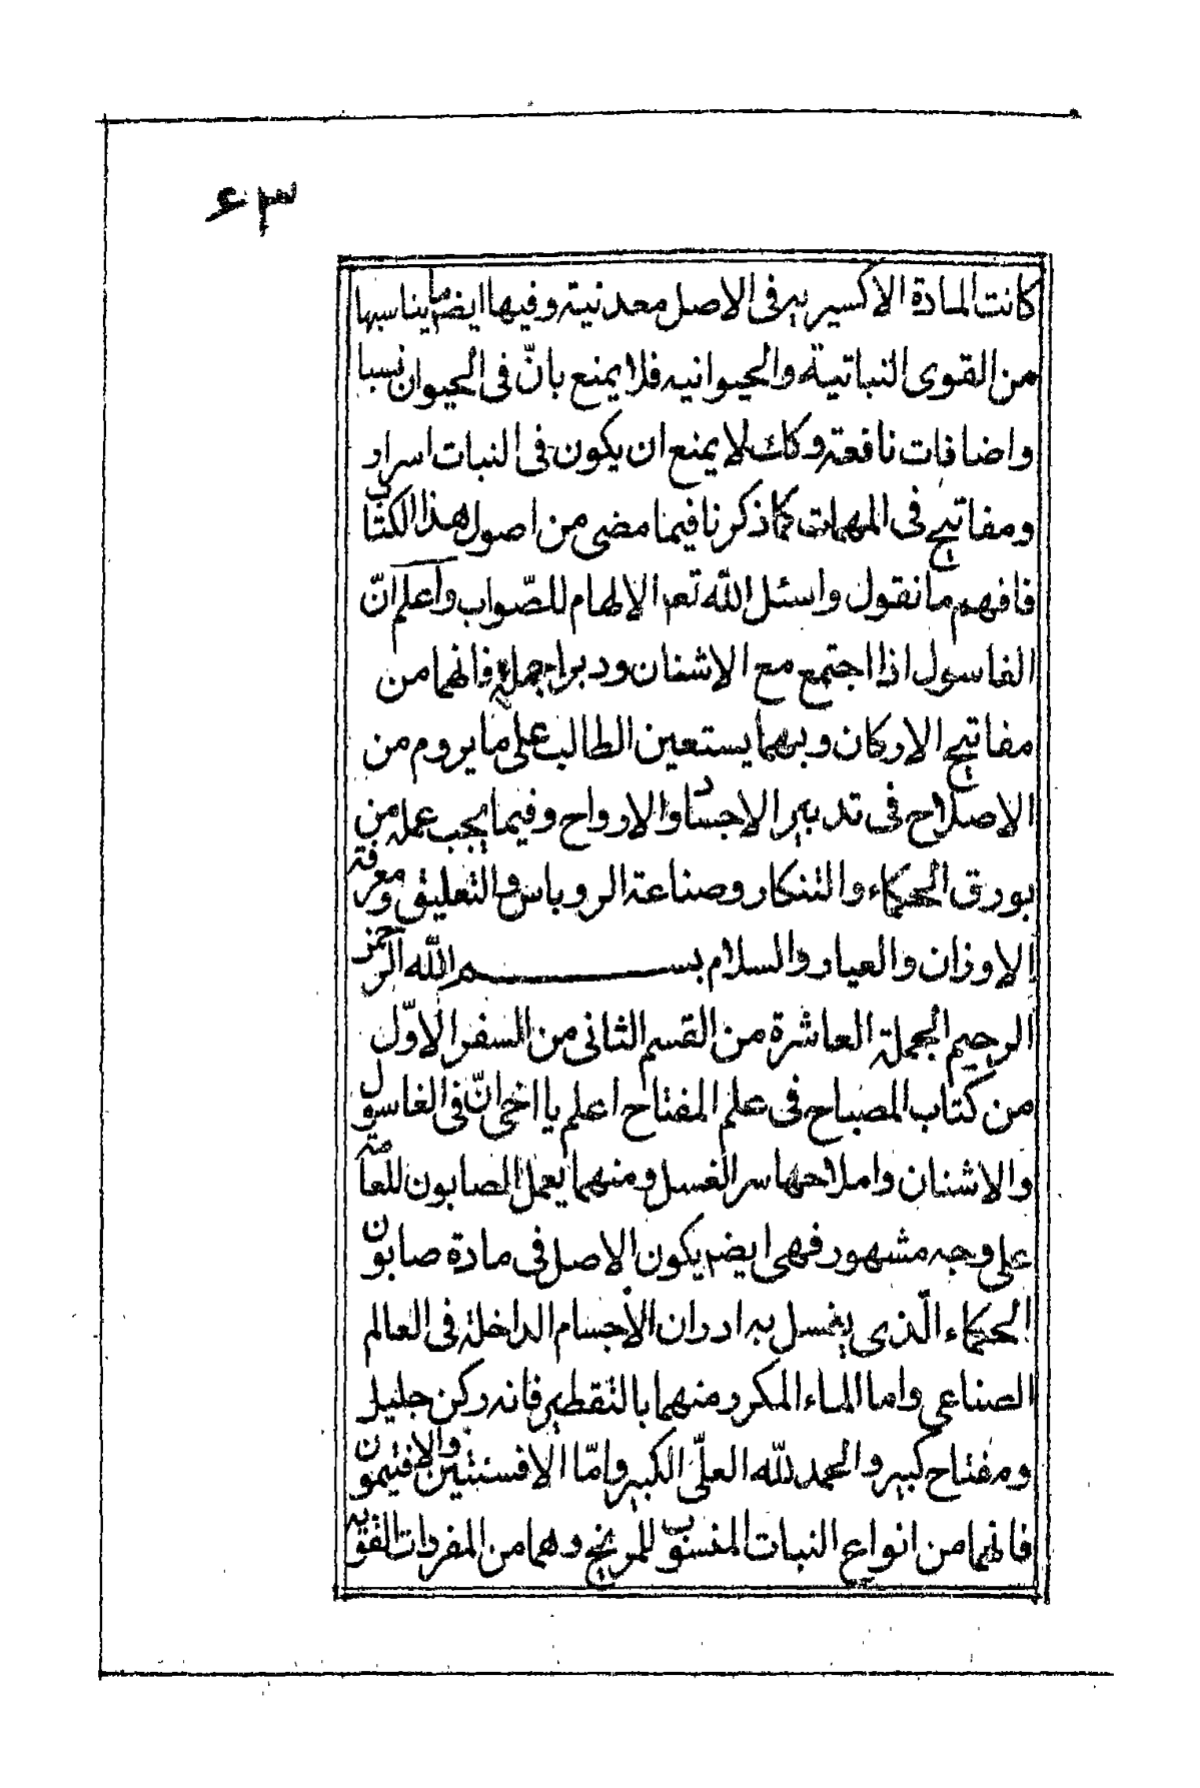 ۶۳
كانت المادة الاكسيريه فى الاصل معدنية وفيها ايضا ما يناسبها
من القوى النباتية والحيوانيه فلا يمنع بانّ فى الحيوان نسبا
واضافات نافعة وكك لا يمنع ان يكون فى النبات اسرار
ومفاتيح فى المهمات كما ذكرنا فيما مضى من اصول هذا الكتاب
فافهم ما نقول واسئل الله تعه الالهام للصّواب واعلم انّ
الفاسول اذا اجتمع مع الاشنان ودبرا جملة فانهما من
مفاتيح الاركان وبهما يستعين الطالب على ما يروم من
الاصلاح فى تدبير الاجساد والارواح وفيما يجب عمله من
بورق الحكماء والتنكار وصناعة الروباس والتعليق ومعرفة
الاوزان والعيار والسلام بسم الله الرحمن
الرحيم الجملة العاشرة من القسم الثانى من السفر الاوّل
من كتاب المصباح فى علم المفتاح اعلم يا اخى انّ فى الغاسول
والاشنان واملاحها سر الغسل ومنهما يعمل الصابون للعامة
على وجه مشهور فهى ايضه يكون الاصل فى مادة صابون
الحكماء الّذى يغسل به ادران الأجسام الداخلة فى العالم
الصناعى واما الماء المكرر منهما بالتقطير فانه ركن جليل
ومفتاح كبير والحمد لله العلىّ الكبير وامّا الافسنتين والافتيمون
فانهما من انواع النبات المنسوب للمريخ وهما من المفردات